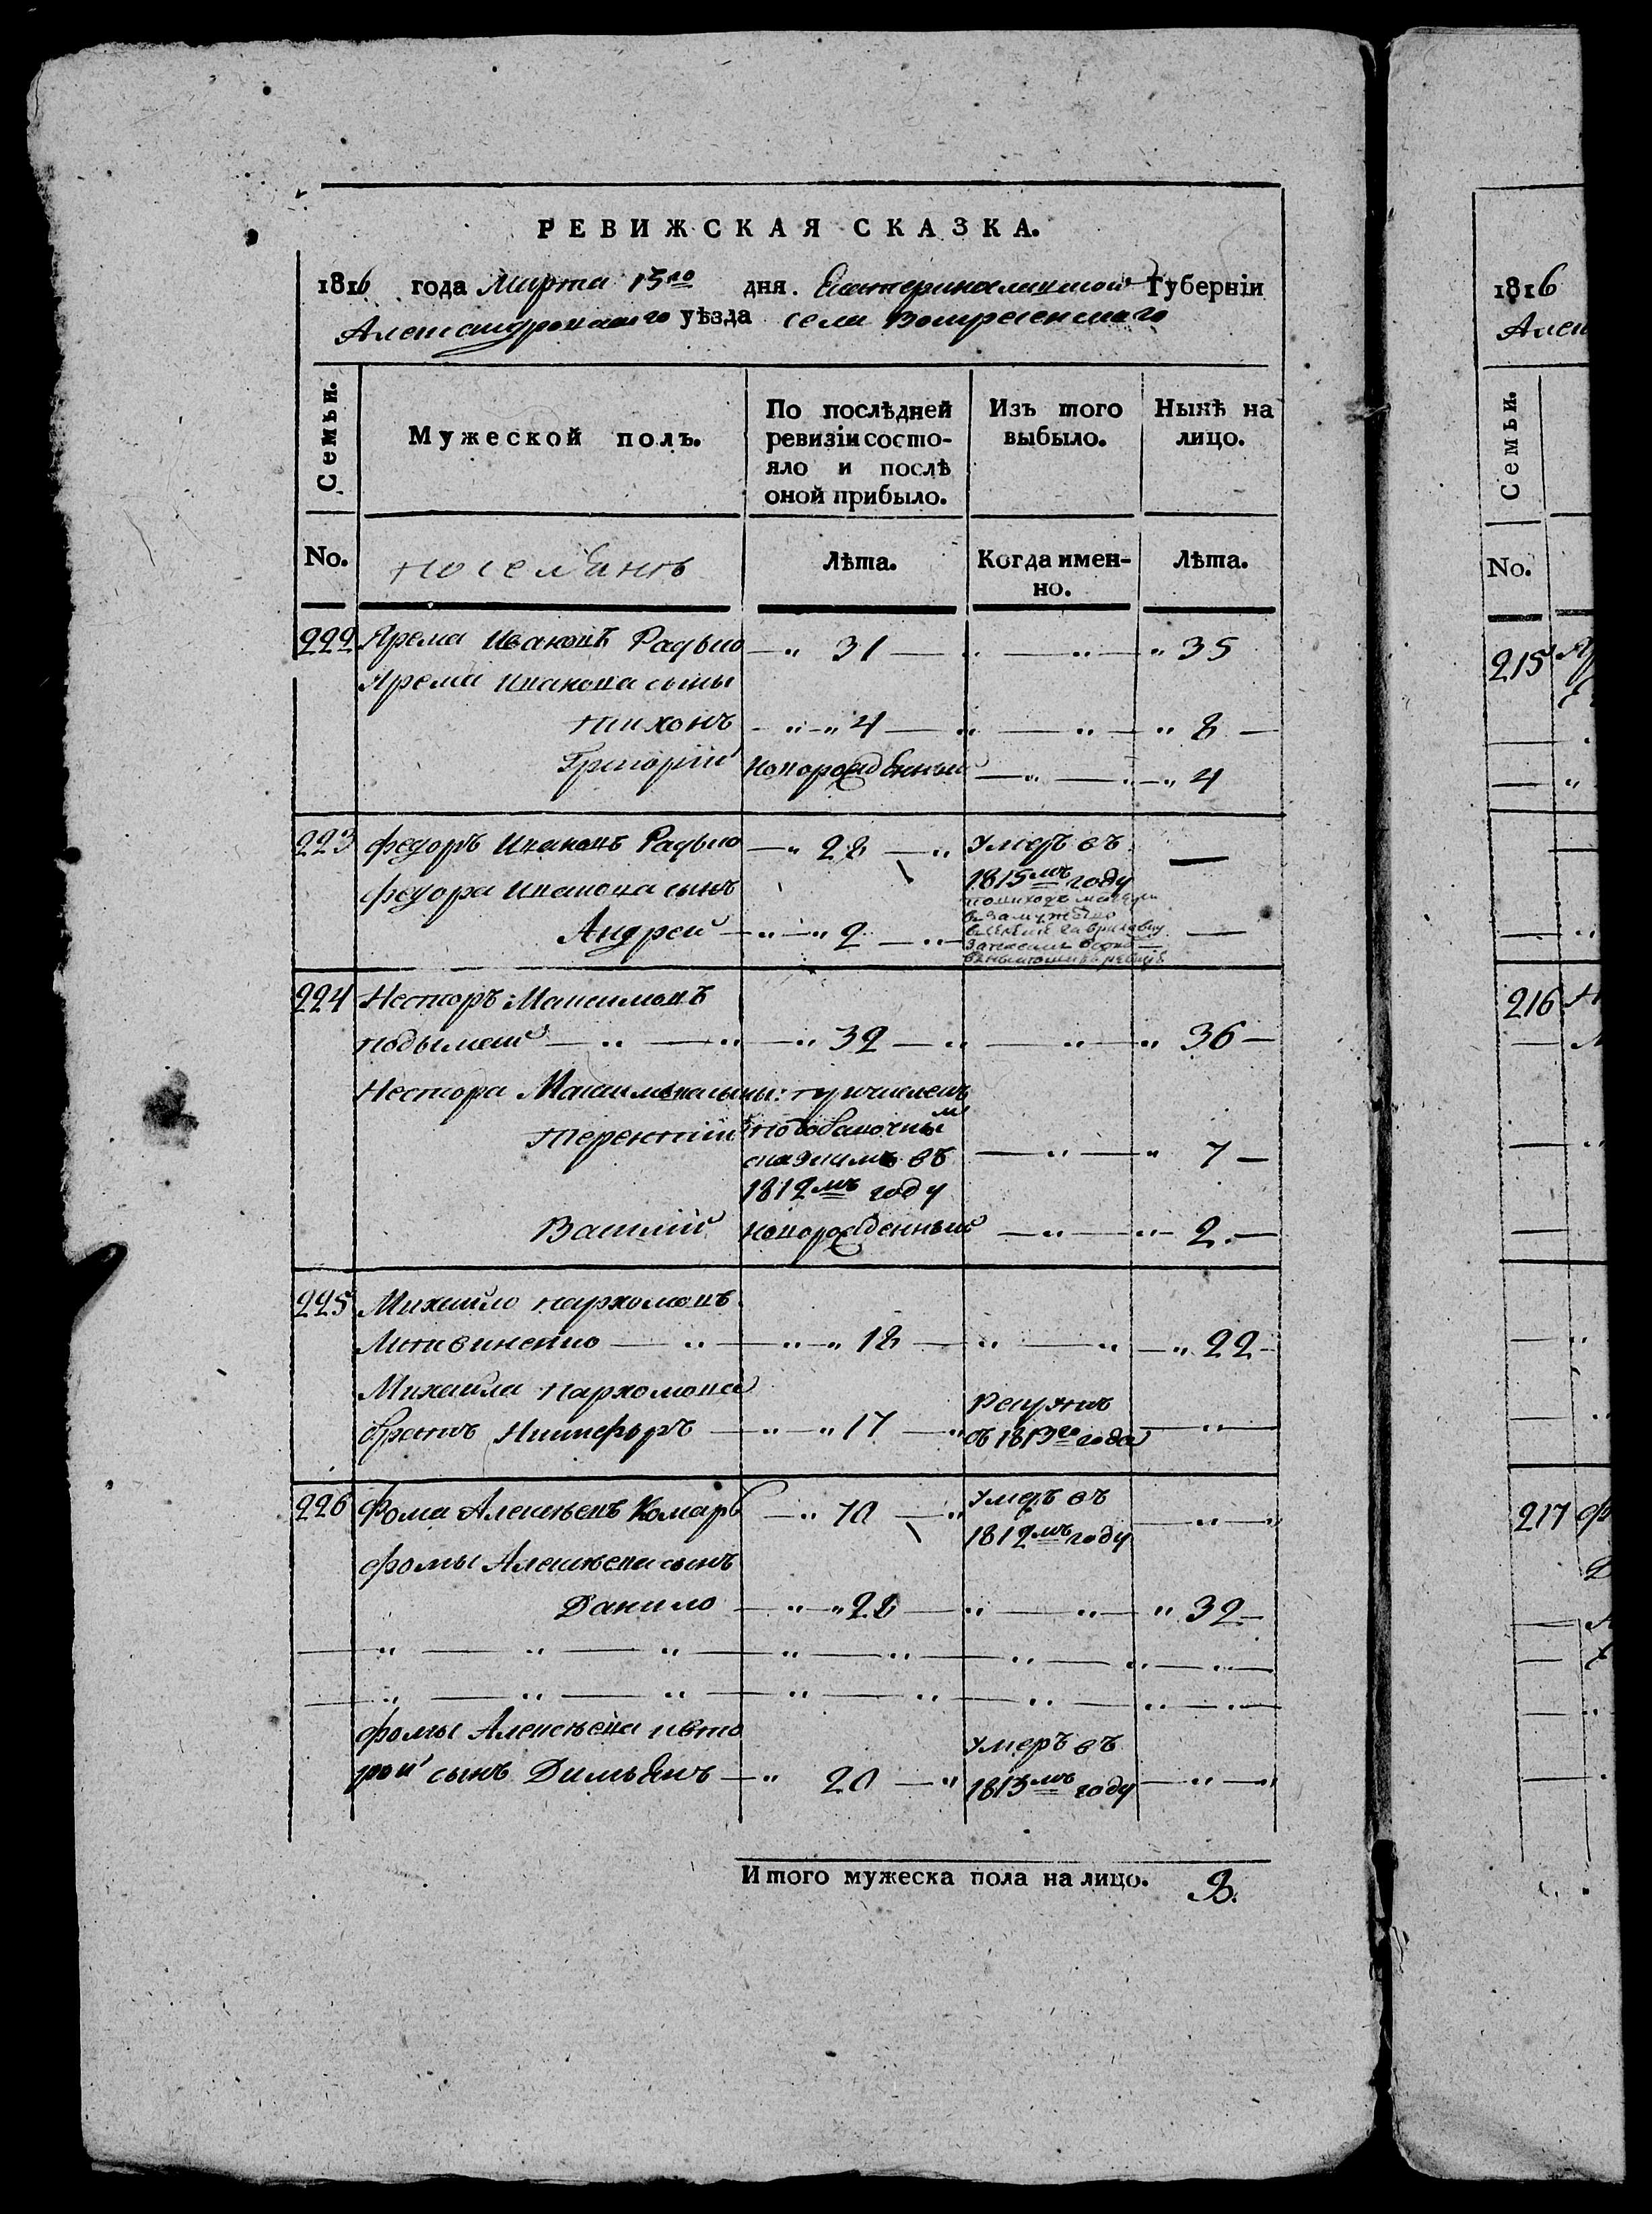 РЕВИЖСКАЯ СКАЗКА.
1816 года Марта 15го дня. Екатеринославской Губерніи
Александровскаго уѣзда села Вознесенскаго
Семьи.
Мужеской полъ.
По послѣдней ревизіи состо-
яло и послѣ
оной прибыло.
Изъ того
выбыло.
Нынѣ на
лицо.
No.
поселянъ
Лѣта.
Когда имен-
но.
Лѣта.
222 Ярема Ивановъ Радько — " 31 — " — " — " 35
Ярема Иванова сыны
Тихонъ — " — " 4 — " — " — " 8 —
Григорій новорожденный — " — " — " 4
223 Федоръ Ивановъ Радько — " 28 — " Умеръ въ —
1815мъ году
Федора Иванова сынъ
Андрей — " — " 2 — " —
в замужство
224 Несторъ Максимовъ
— " — " — " 32 — " — " — " 36 —
Нестора Максимова сыны: причисленъ
Терентій по добавочнымъ
сказкамъ въ — " — " 7 —
1812мъ году
Василій новорожденный — " — " — 2. —
225 Михайло Пархомовъ
Литвиненко — " — " — " 18 — " — " — " 22 —
Михайла Пархомова
братъ Никифоръ — " — " 17 — " Рекрутъ — " —
съ 1813го года
226 Фома Алексѣевъ Комаръ — " 70 — " Умеръ въ — " — "
1812мъ году
Фомы Алексѣева сынъ
Данило — " — " 28 — " — " — " 32 —
— " — " — " — " — " — " — " — " —
— " — " — " — " — " — " — " — " —
Фомы Алексѣева ивто
рой сынъ Димьянъ — " 20 — " Умеръ въ — " — "
1813мъ году
Итого мужеска пола на лицо. 8.
1816
Алек
Семьи.
No.
215
216
217